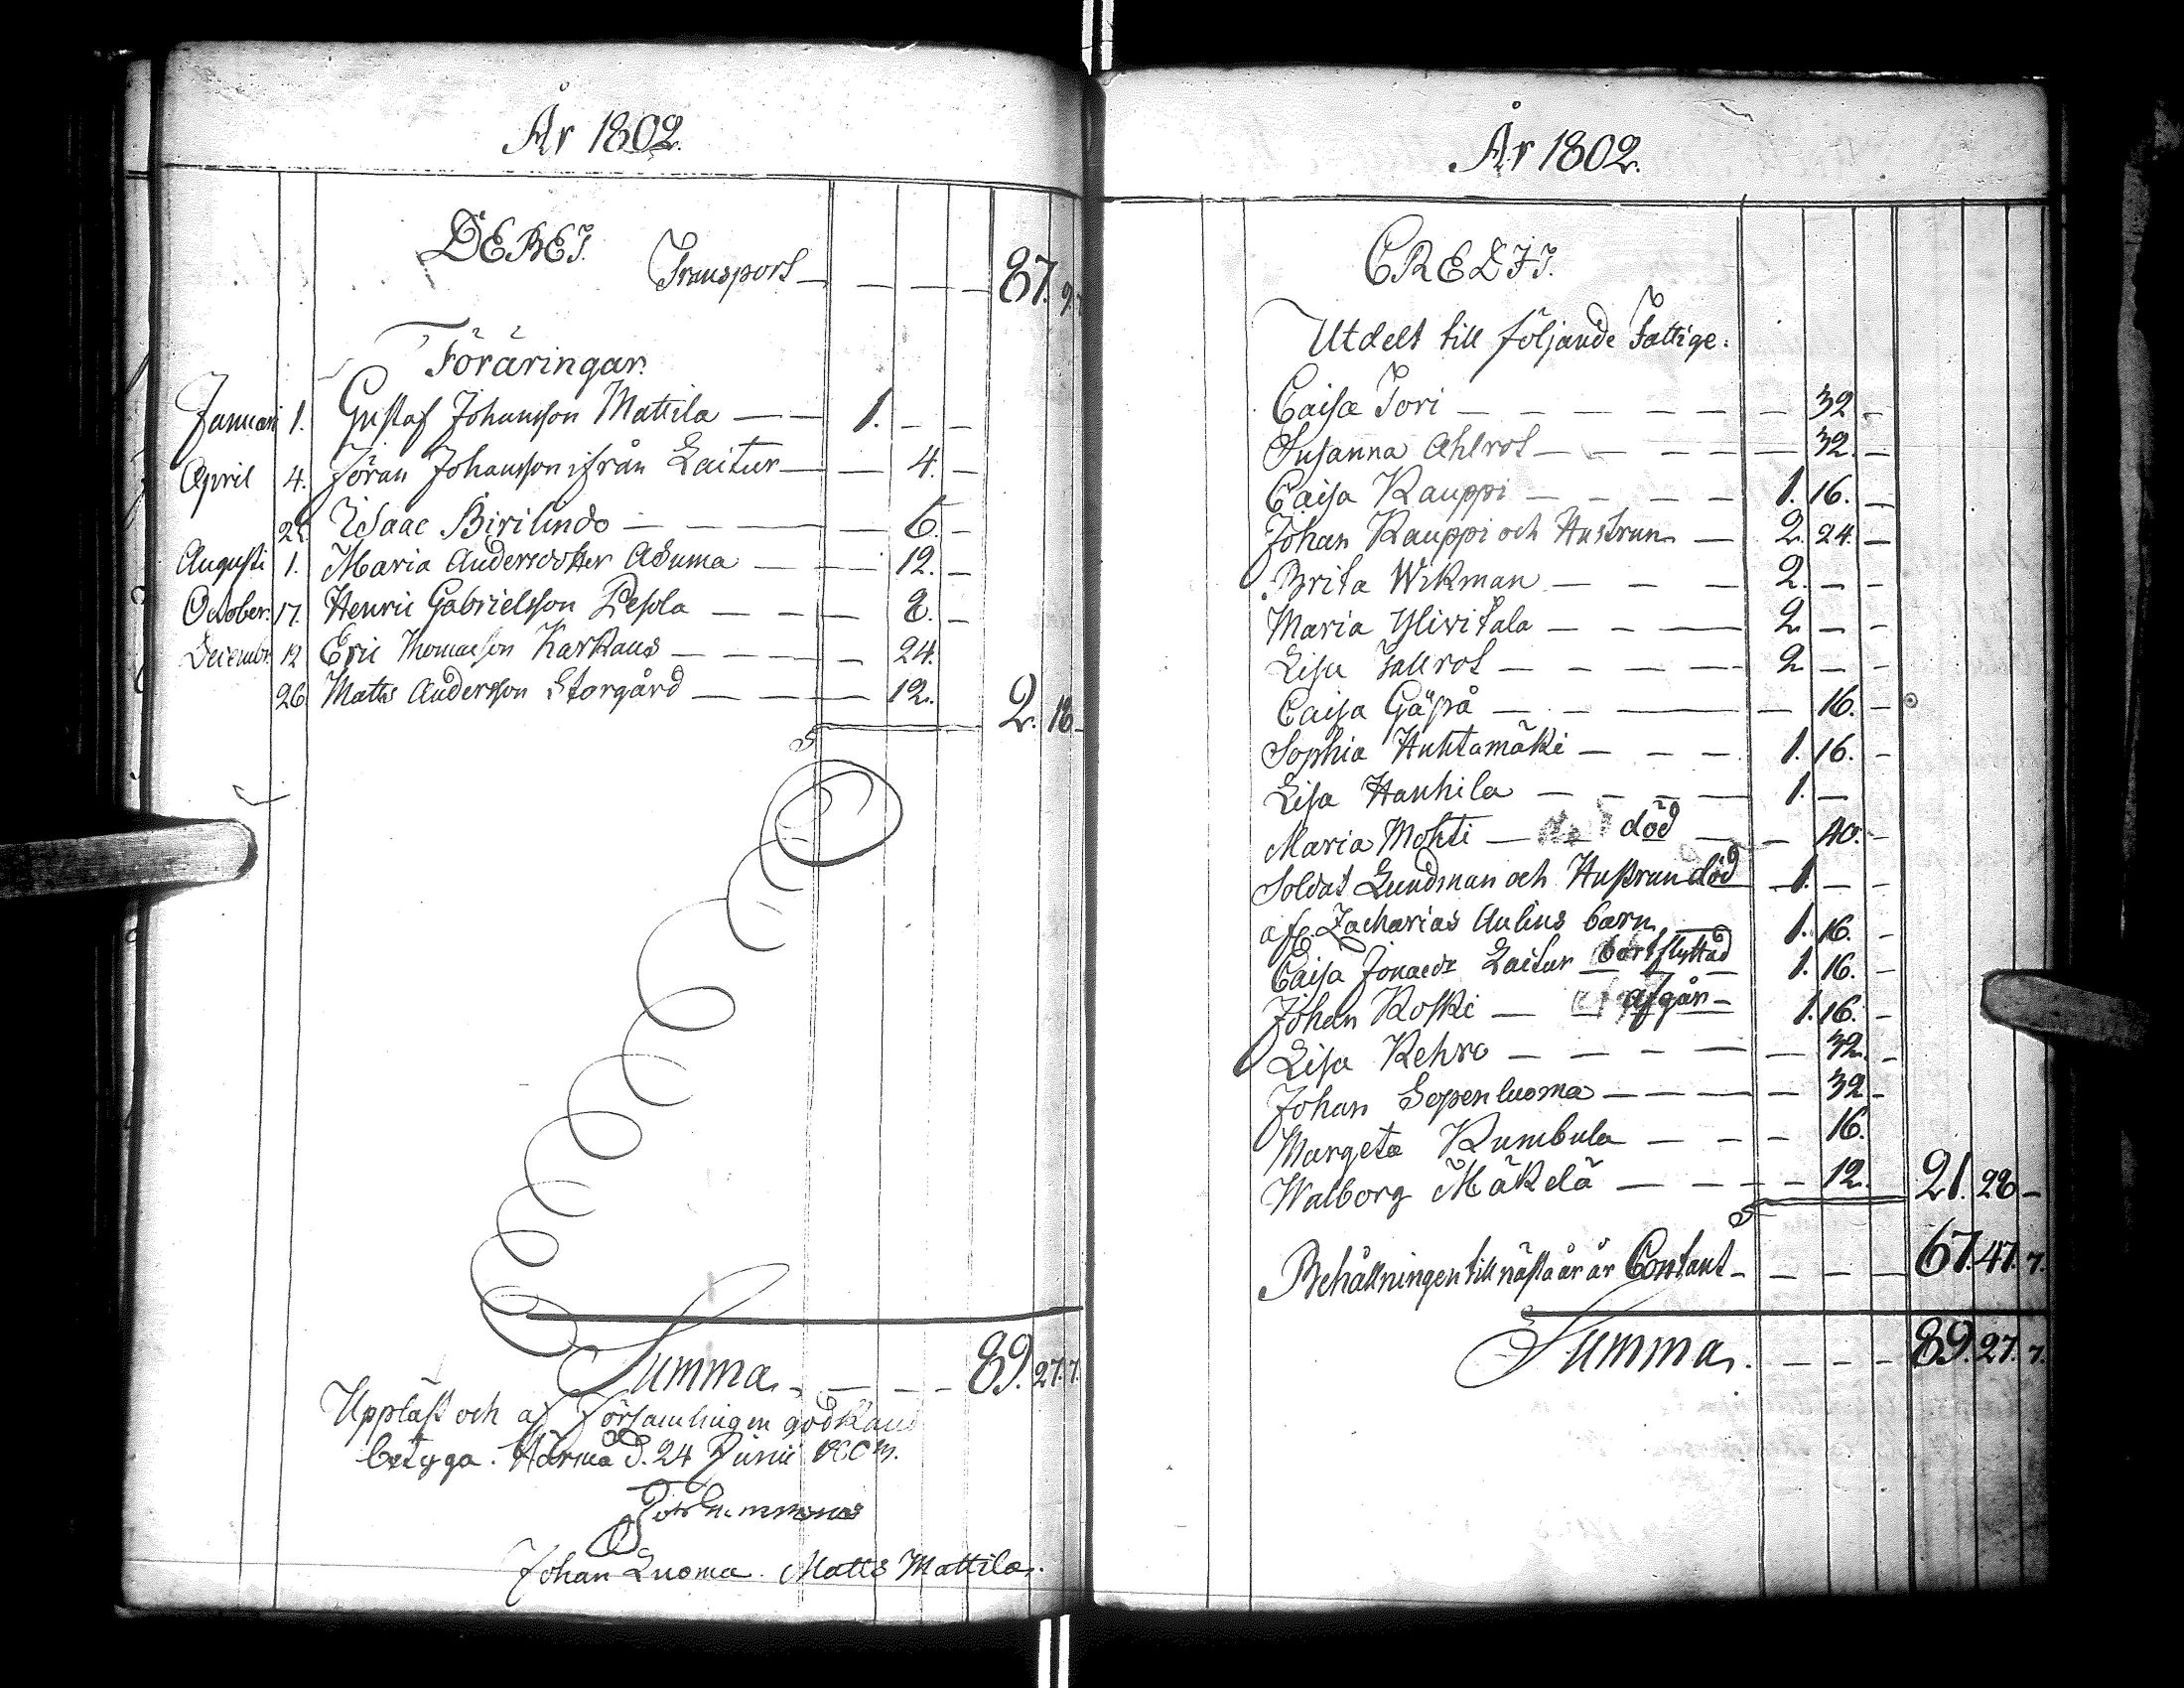 År 1802.
DEBET.
Transport — — — — 87. 9. 7.
Föräringar.
Januari 1. Gustaf Johansson Mattila — — 1. — —
April 4. Jöran Johansson ifrån Laitur — — 4. —
25. Isaac Birilindo — — — — 6. —
Augusti 1. Maria Andersdotter Asuma — — — 12. —
October. 17. Henric Gabrielsson Pesola — — — 8. —
Decembr. 12 Eric Thomasson Karkaus — — — — 24.
26 Matts Andersson Storgård — — — — 12. 2. 18 —
Summa. — — — — 89. 27. 7.
Uppläst och af Församlingen godkänd
betyga. Härmä d. 24 Junii 1803.
Johan Luoma. Matts Mattila.
År 1802.
CREDIT.
Utdelt till följande Fattige.
Caisa Tori — — — — — — — 32 —
Susanna Ahlrot — — — — — 32. —
Caisa Kauppi — — — — 1. 16. —
Johan Kauppi och Hustrun — 2. 24. —
Brita Wikman — — — 2. — —
Maria Ylivitala — — — 2 — —
Lisa Jallrot — — — — 2 — —
Caisa Gäspå — — — — 16. —
Sophia Huhtamäki — — — 1. 16. —
Lisa Hanhila — — — — 1. —
Maria Mohti — död — — 40. —
Soldat Lundman och Hustrun död — 1. — —
afl. Zacharias Aulins barn — 1. 16. —
Caisa Jonaedr Laitur bortflyttad — 1. 16. —
Johan Koski — afgår — 1. 16. —
Lisa Rehro — — — — — 32. —
Johan Sopenluoma — — — — — 32 —
Margeta Rumbula — — — 16.
Walborg Mäkelä — — — — — 12. 21. 28 —
Behållningen till nästa år är Contant — — — — 67. 47. 7.
Summa. — — — 89. 27. 7.